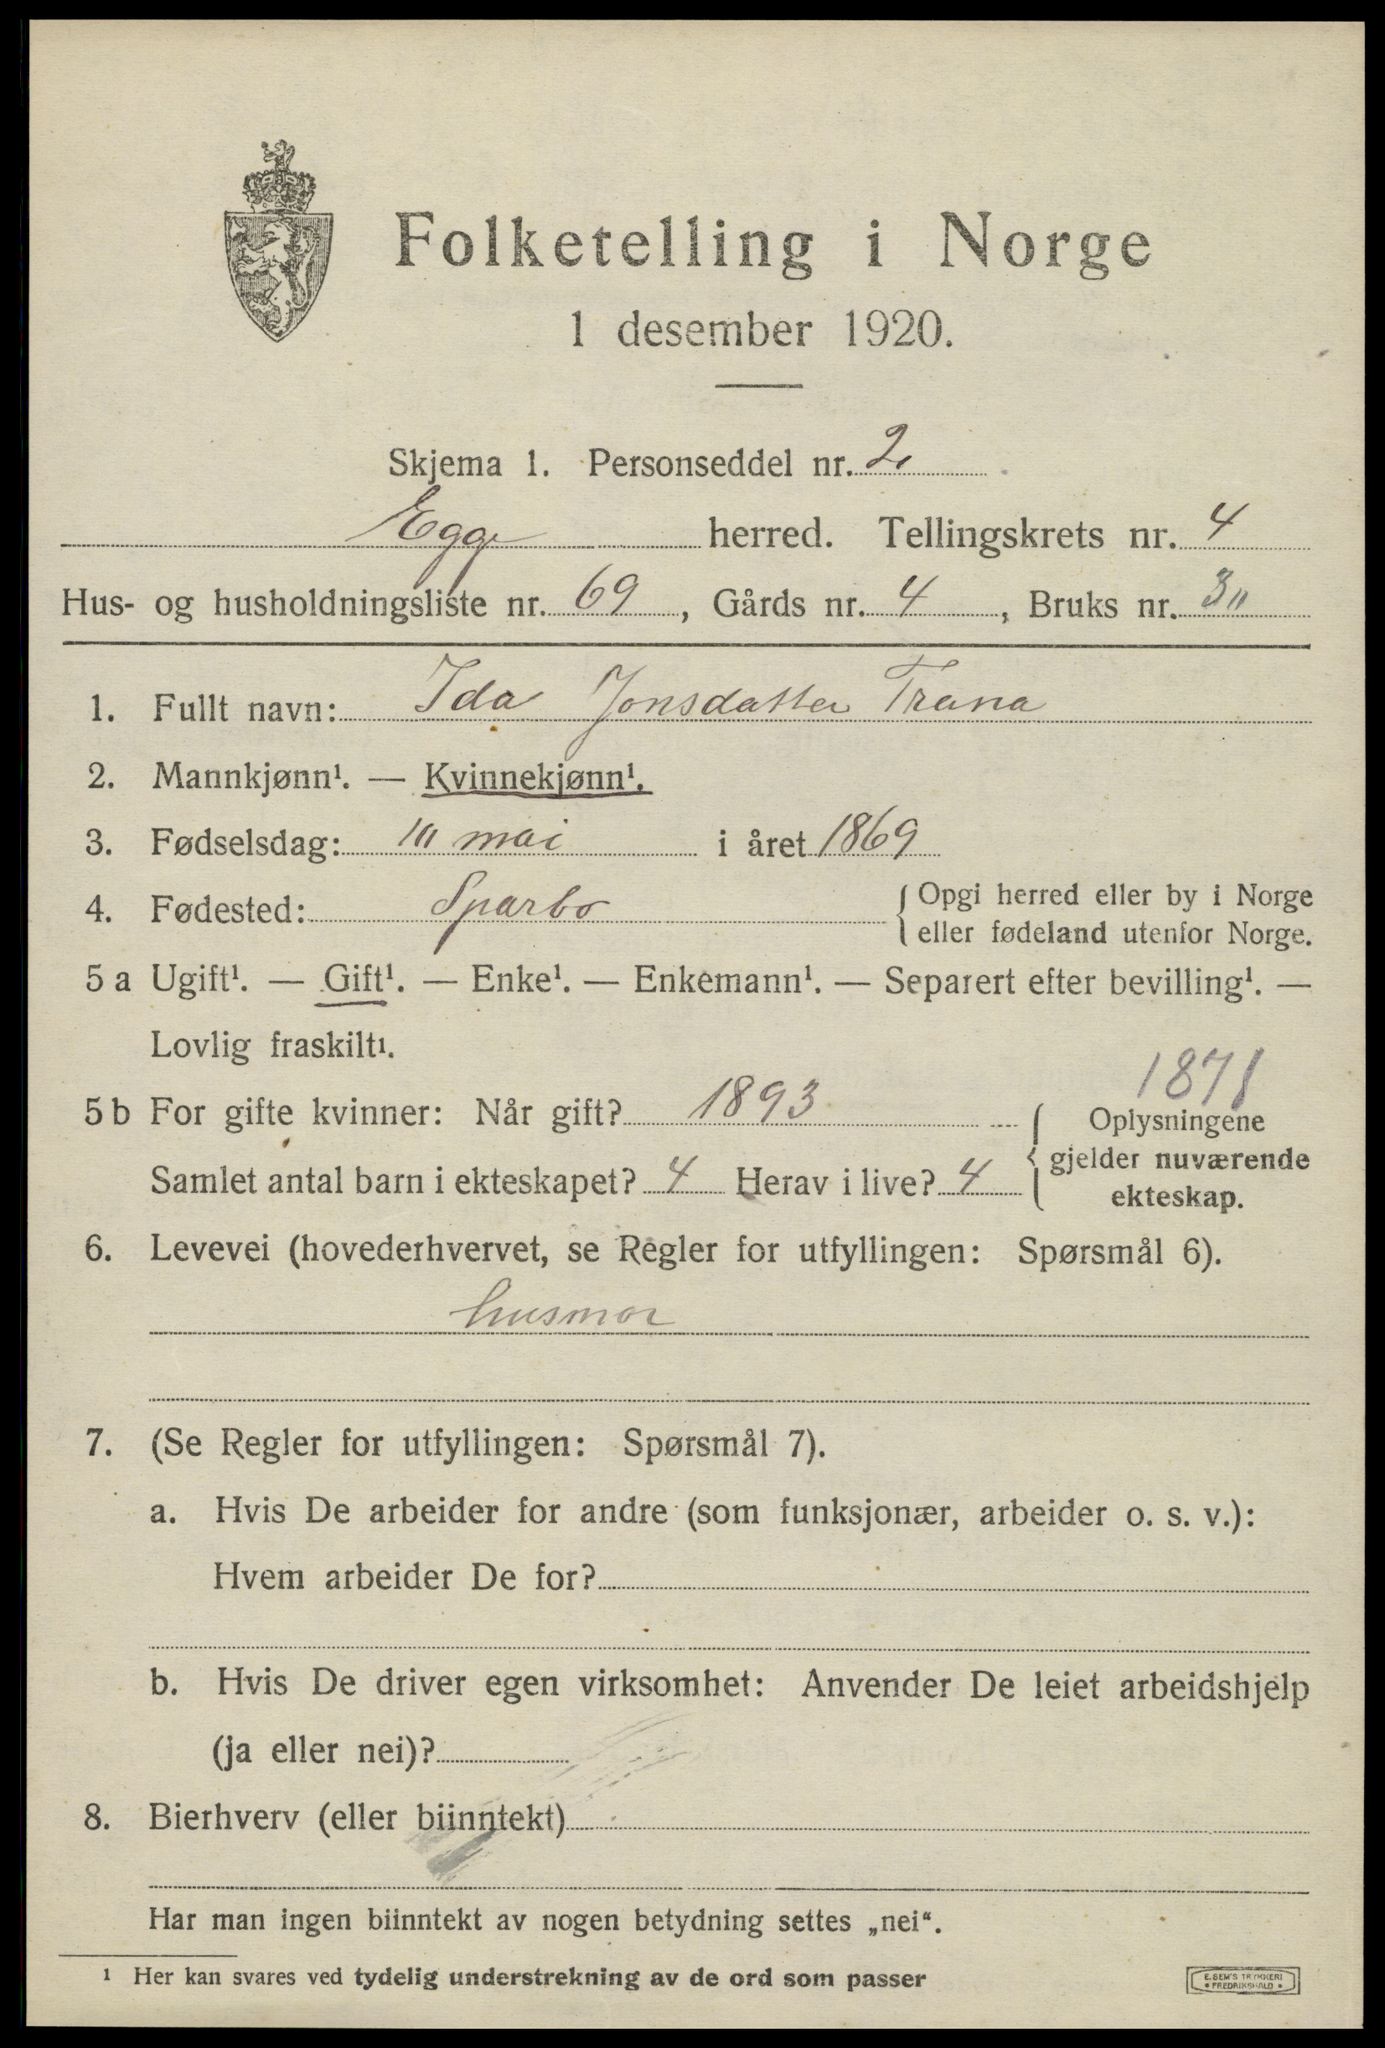 Folketelling i Norge
1 desember 1920.
Skjema 1. Personseddel nr. 2
Egge herred. Tellingskrets nr. 4
Hus- og husholdningsliste nr. 69, Gårds nr. 4, Bruks nr. 3
1. Fullt navn: Ida Jonsdatter Trana
2. Mannkjønn¹. — Kvinnekjønn¹.
3. Fødselsdag: mai i året 1869
4. Fødested: Sparbo { Opgi herred eller by i Norge
eller fødeland utenfor Norge.
5 a Ugift¹. — Gift¹. — Enke¹. — Enkemann¹. — Separert efter bevilling¹. —
Lovlig fraskilt¹.
1871
5 b For gifte kvinner: Når gift? 1893 { Oplysningene
gjelder nuværende
ekteskap.
Samlet antal barn i ekteskapet? 4 Herav i live? 4
6. Levevei (hovederhvervet, se Regler for utfyllingen: Spørsmål 6).
husmor
7. (Se Regler for utfyllingen: Spørsmål 7).
a. Hvis De arbeider for andre (som funksjonær, arbeider o. s. v.):
Hvem arbeider De for?
b. Hvis De driver egen virksomhet: Anvender De leiet arbeidshjelp
(ja eller nei)?
8. Bierhverv (eller biinntekt)
Har man ingen biinntekt av nogen betydning settes „nei“.
¹ Her kan svares ved tydelig understrekning av de ord som passer
E. SEM'S TRYKKERI
• FREDRIKSHALD •